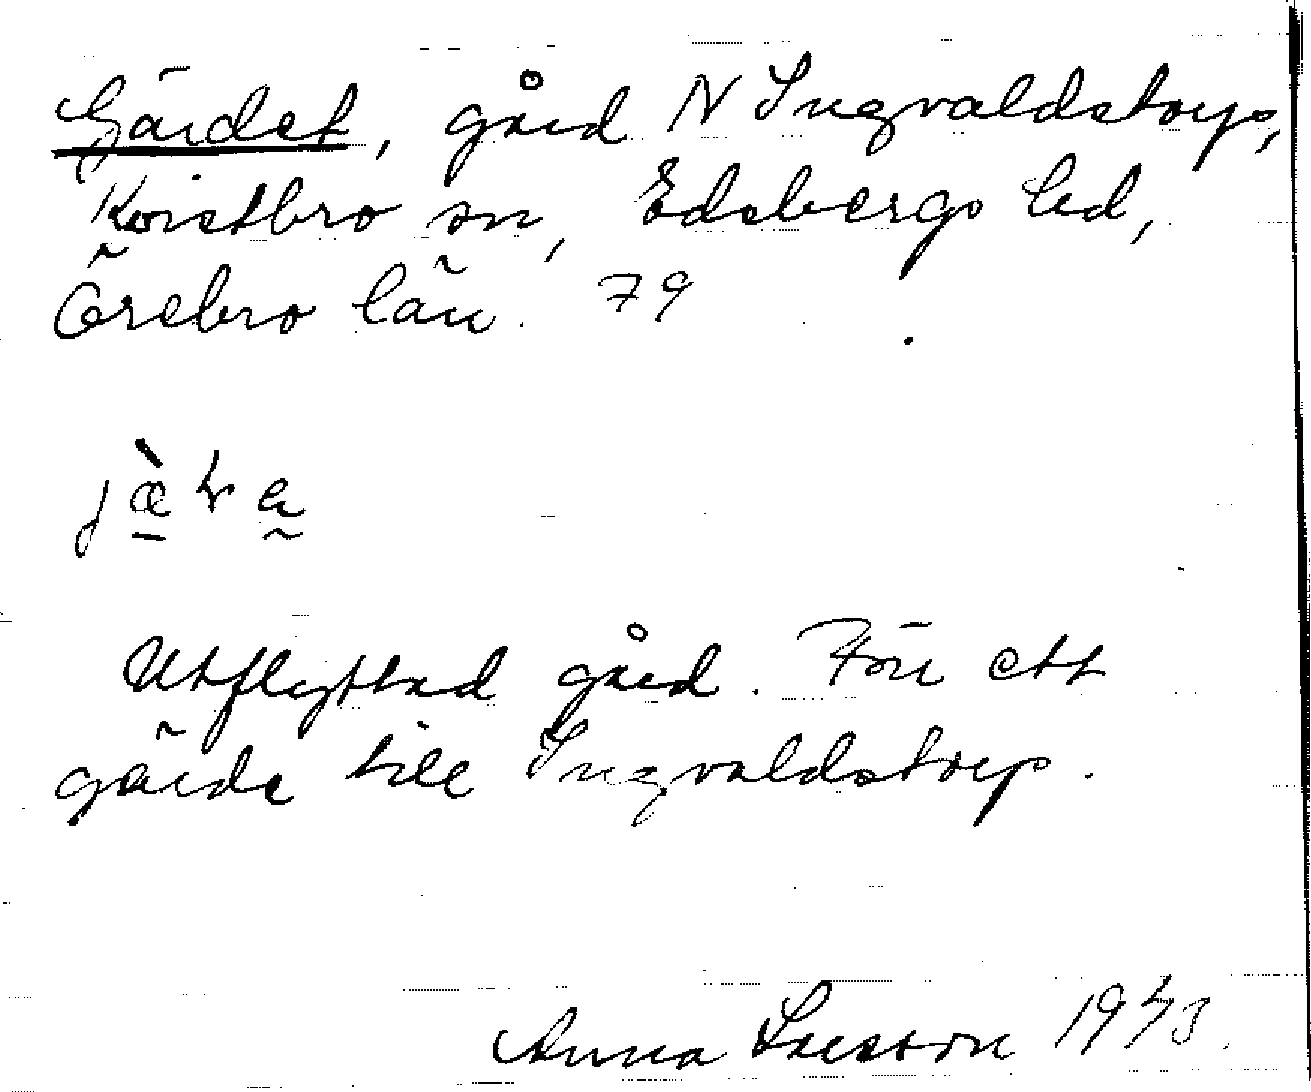 Gärdet, gård N Ingvaldstorp,
Kvistbro sn, Edsbergs hd,
Örebro län. 79
Utflyttad gård. Förr ett
gärde till Ingvaldstorp.
Anna Larsson 1943.